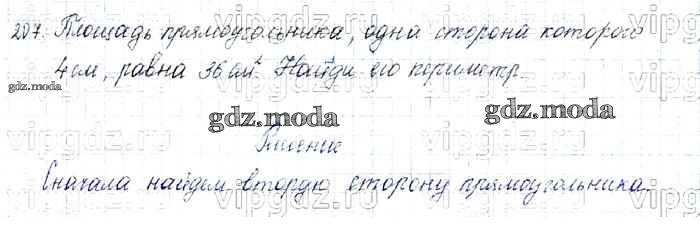 207. Площадь прямоугольника, одна сторона которого
4 см, равна 36 см². Найди его периметр
gdz.moda
gdz.moda
gdz.moda
Решение
Сначала найдем вторую сторону прямоугольника.